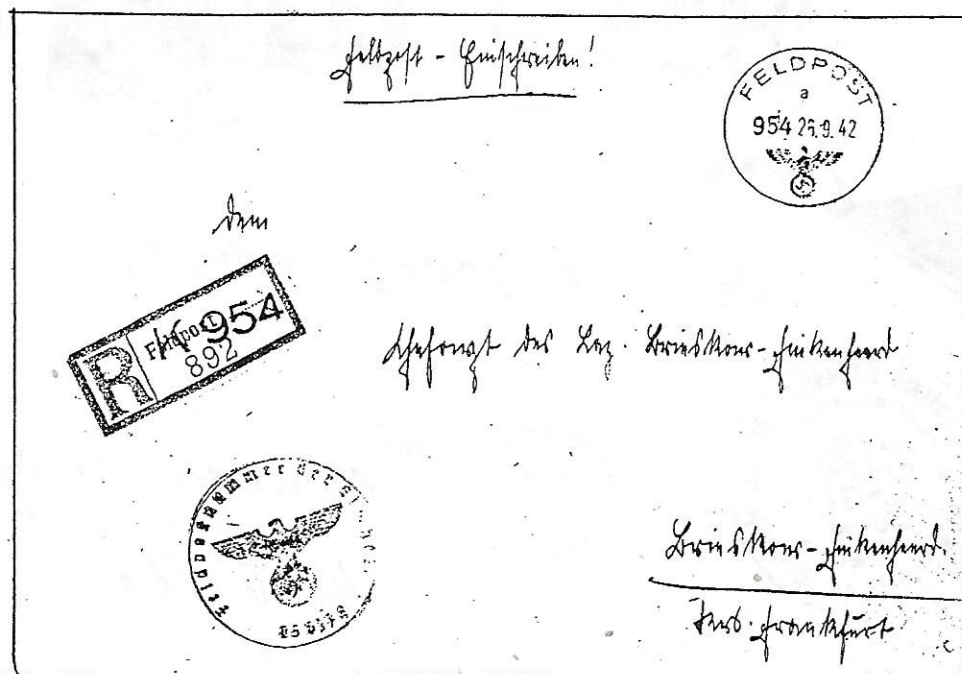 Feldpost - Einschreiben!
FELDPOST
a
954 26.9.42
dem
R Feldpost K 954
892
Chefarzt des Laz. Brieskow-Finkenheerd
Feldpostnummer
Brieskow-Finkenheerd
Frankfurt